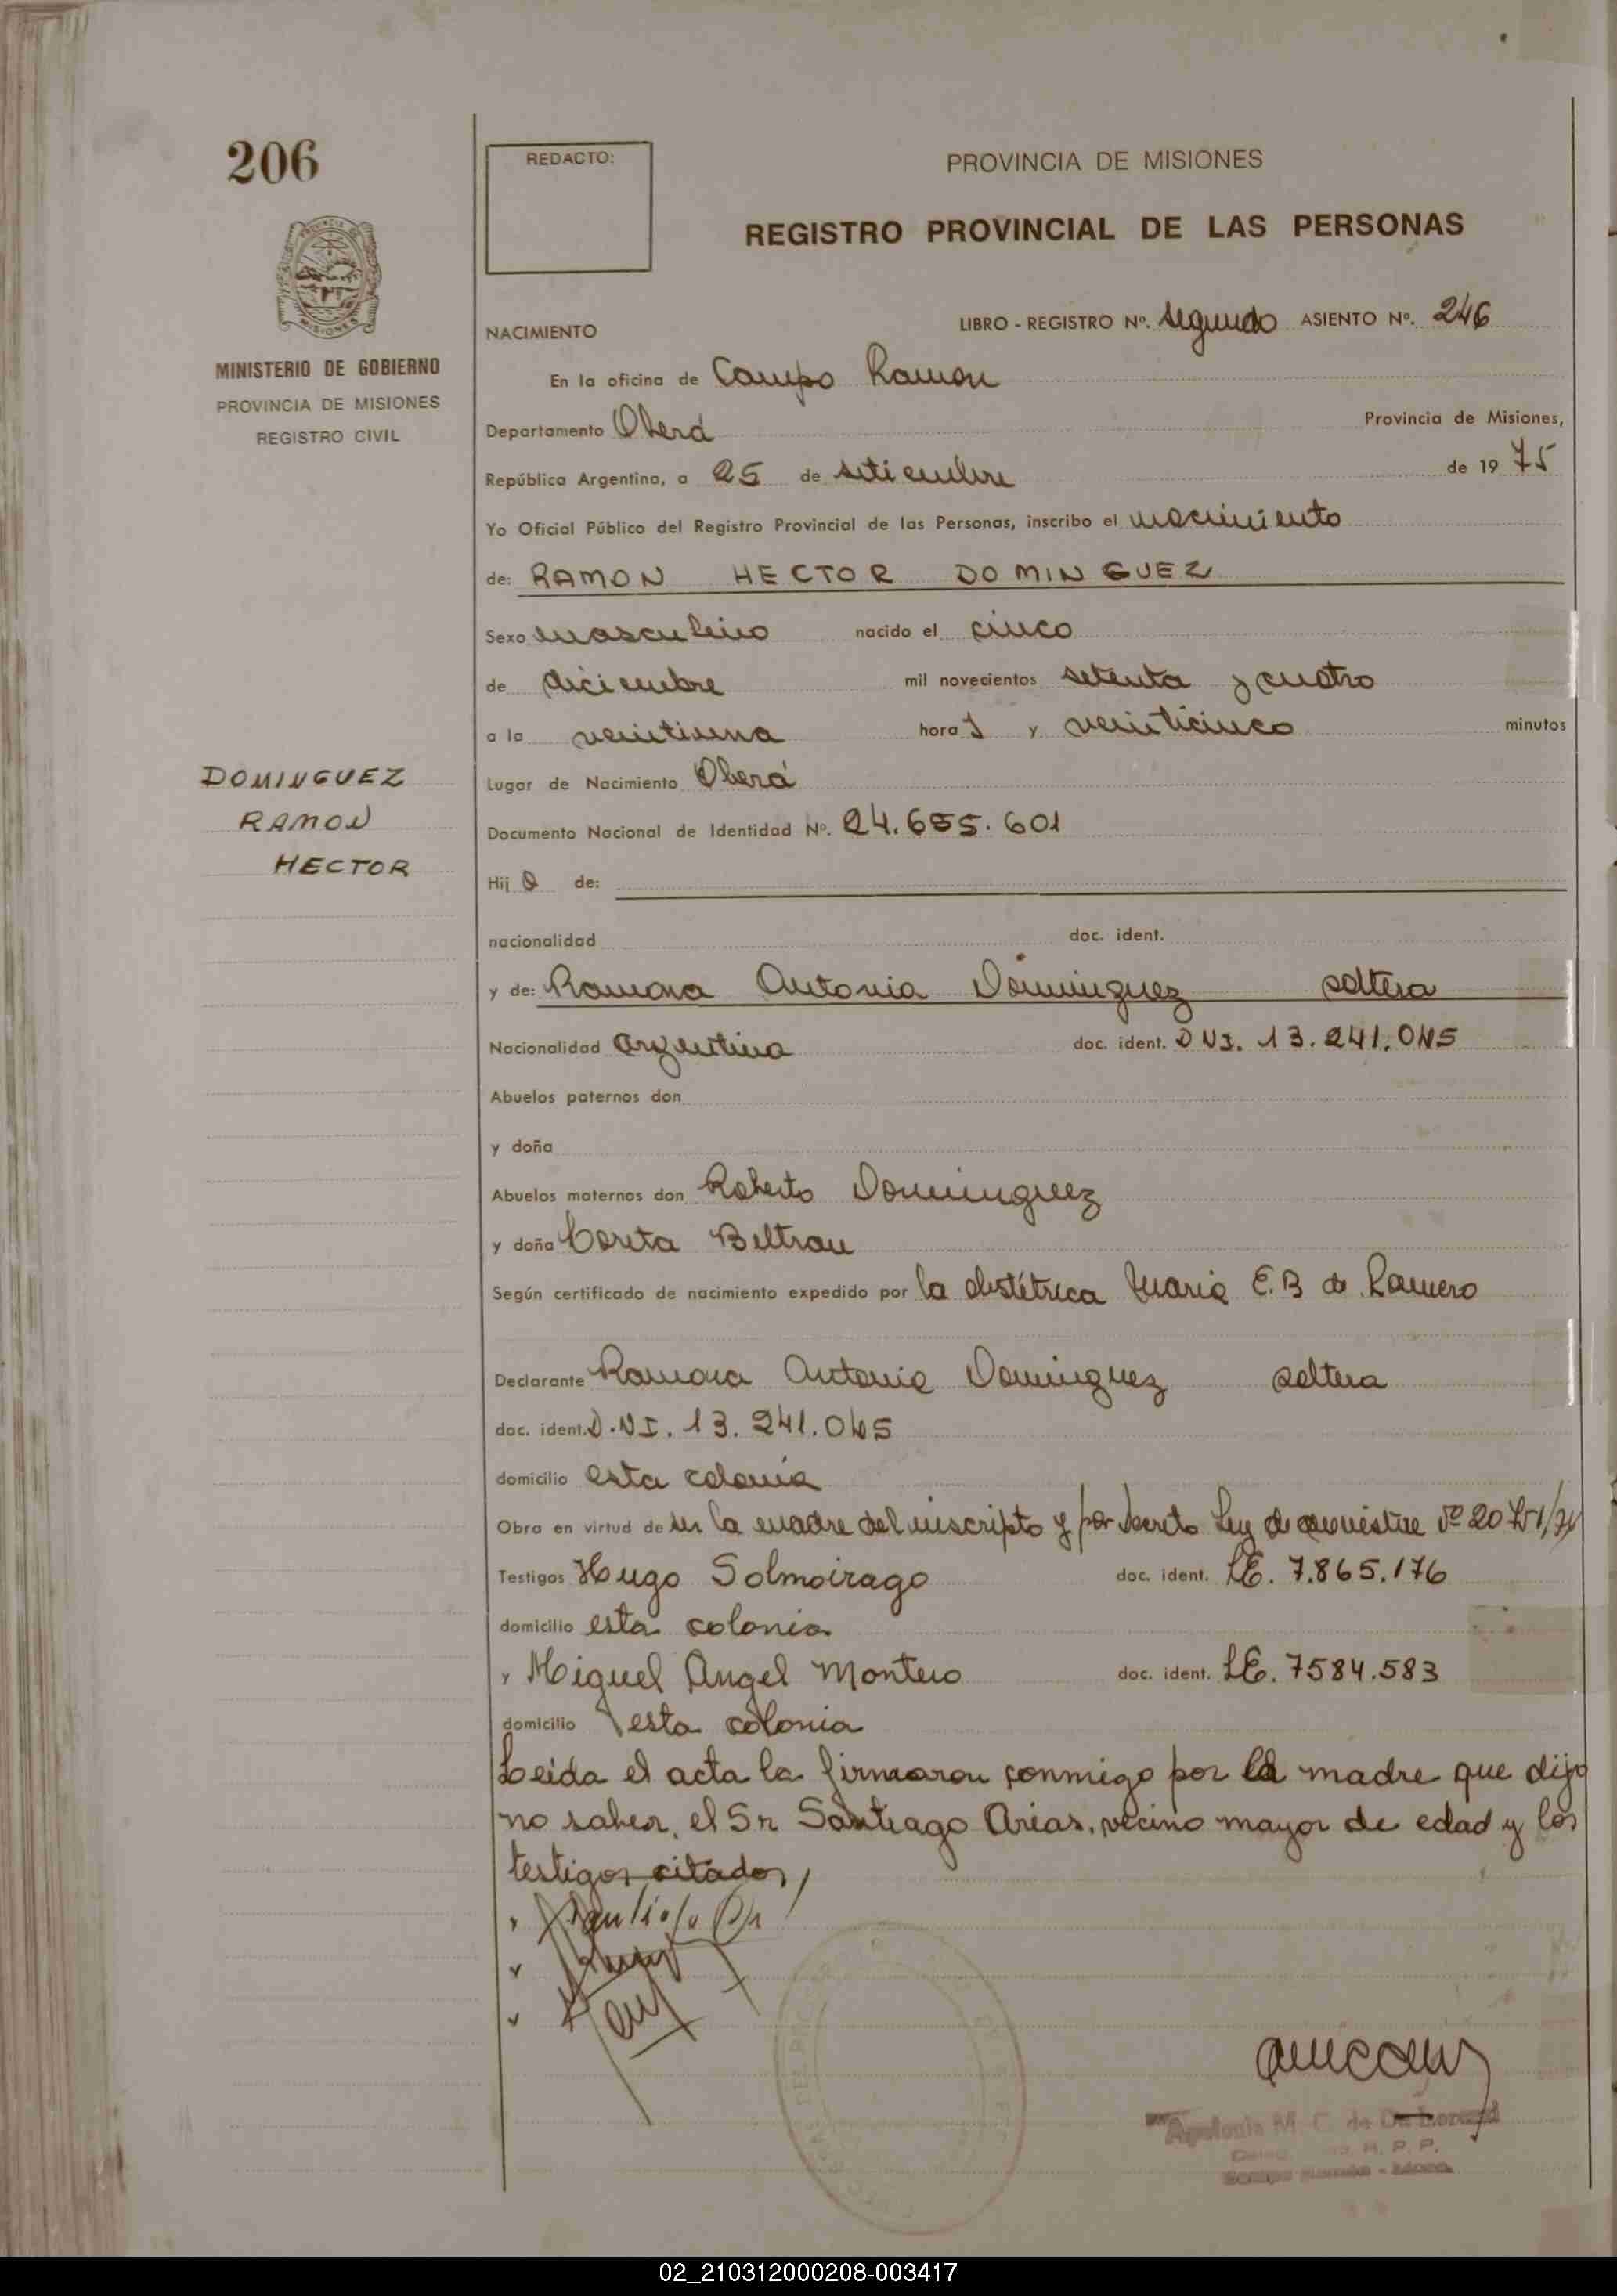 206
REDACTO:
PROVINCIA DE MISIONES
REGISTRO PROVINCIAL DE LAS PERSONAS
MINISTERIO DE GOBIERNO
PROVINCIA DE MISIONES
REGISTRO CIVIL
NACIMIENTO
LIBRO - REGISTRO Nº. segundo ASIENTO Nº. 246
En la oficina de Campo Ramon
Departamento Oberá Provincia de Misiones,
República Argentina, a 25 de setiembre de 1975
Yo Oficial Público del Registro Provincial de las Personas, inscribo el nacimiento
de: RAMON HECTOR DOMINGUEZ
Sexo masculino nacido el cinco
de diciembre mil novecientos setenta y cuatro
a la veintiuna horas y veinticinco minutos
DOMINGUEZ
RAMON
HECTOR
Lugar de Nacimiento Oberá
Documento Nacional de Identidad Nº. 24.655.601
Hijo de:
nacionalidad doc. ident.
y de: Ramona Antonia Dominguez soltera
Nacionalidad argentina doc. ident. DNI. 13.241.045
Abuelos paternos don
y doña
Abuelos maternos don Roberto Dominguez
y doña Corita Beltran
Según certificado de nacimiento expedido por la obstétrica Maria E.B de Romero
Declarante Ramona Antonia Dominguez soltera
doc. ident. D.NI. 13.241.045
domicilio esta colonia
Obra en virtud de ser la madre del inscripto y por Decreto Ley de amnistia Nº 20751/74
Testigos Hugo Solmoirago doc. ident. LE. 7.865.176
domicilio esta colonia
y Miguel Angel Montero doc. ident. LE. 7584.583
domicilio esta colonia
Leida el acta la firmaron conmigo por la madre que dijo
no saber, el Sr Santiago Arias, vecino mayor de edad y los
testigos citados,
Apolonia M. C. de
R. P. P.
02_210312000208-003417